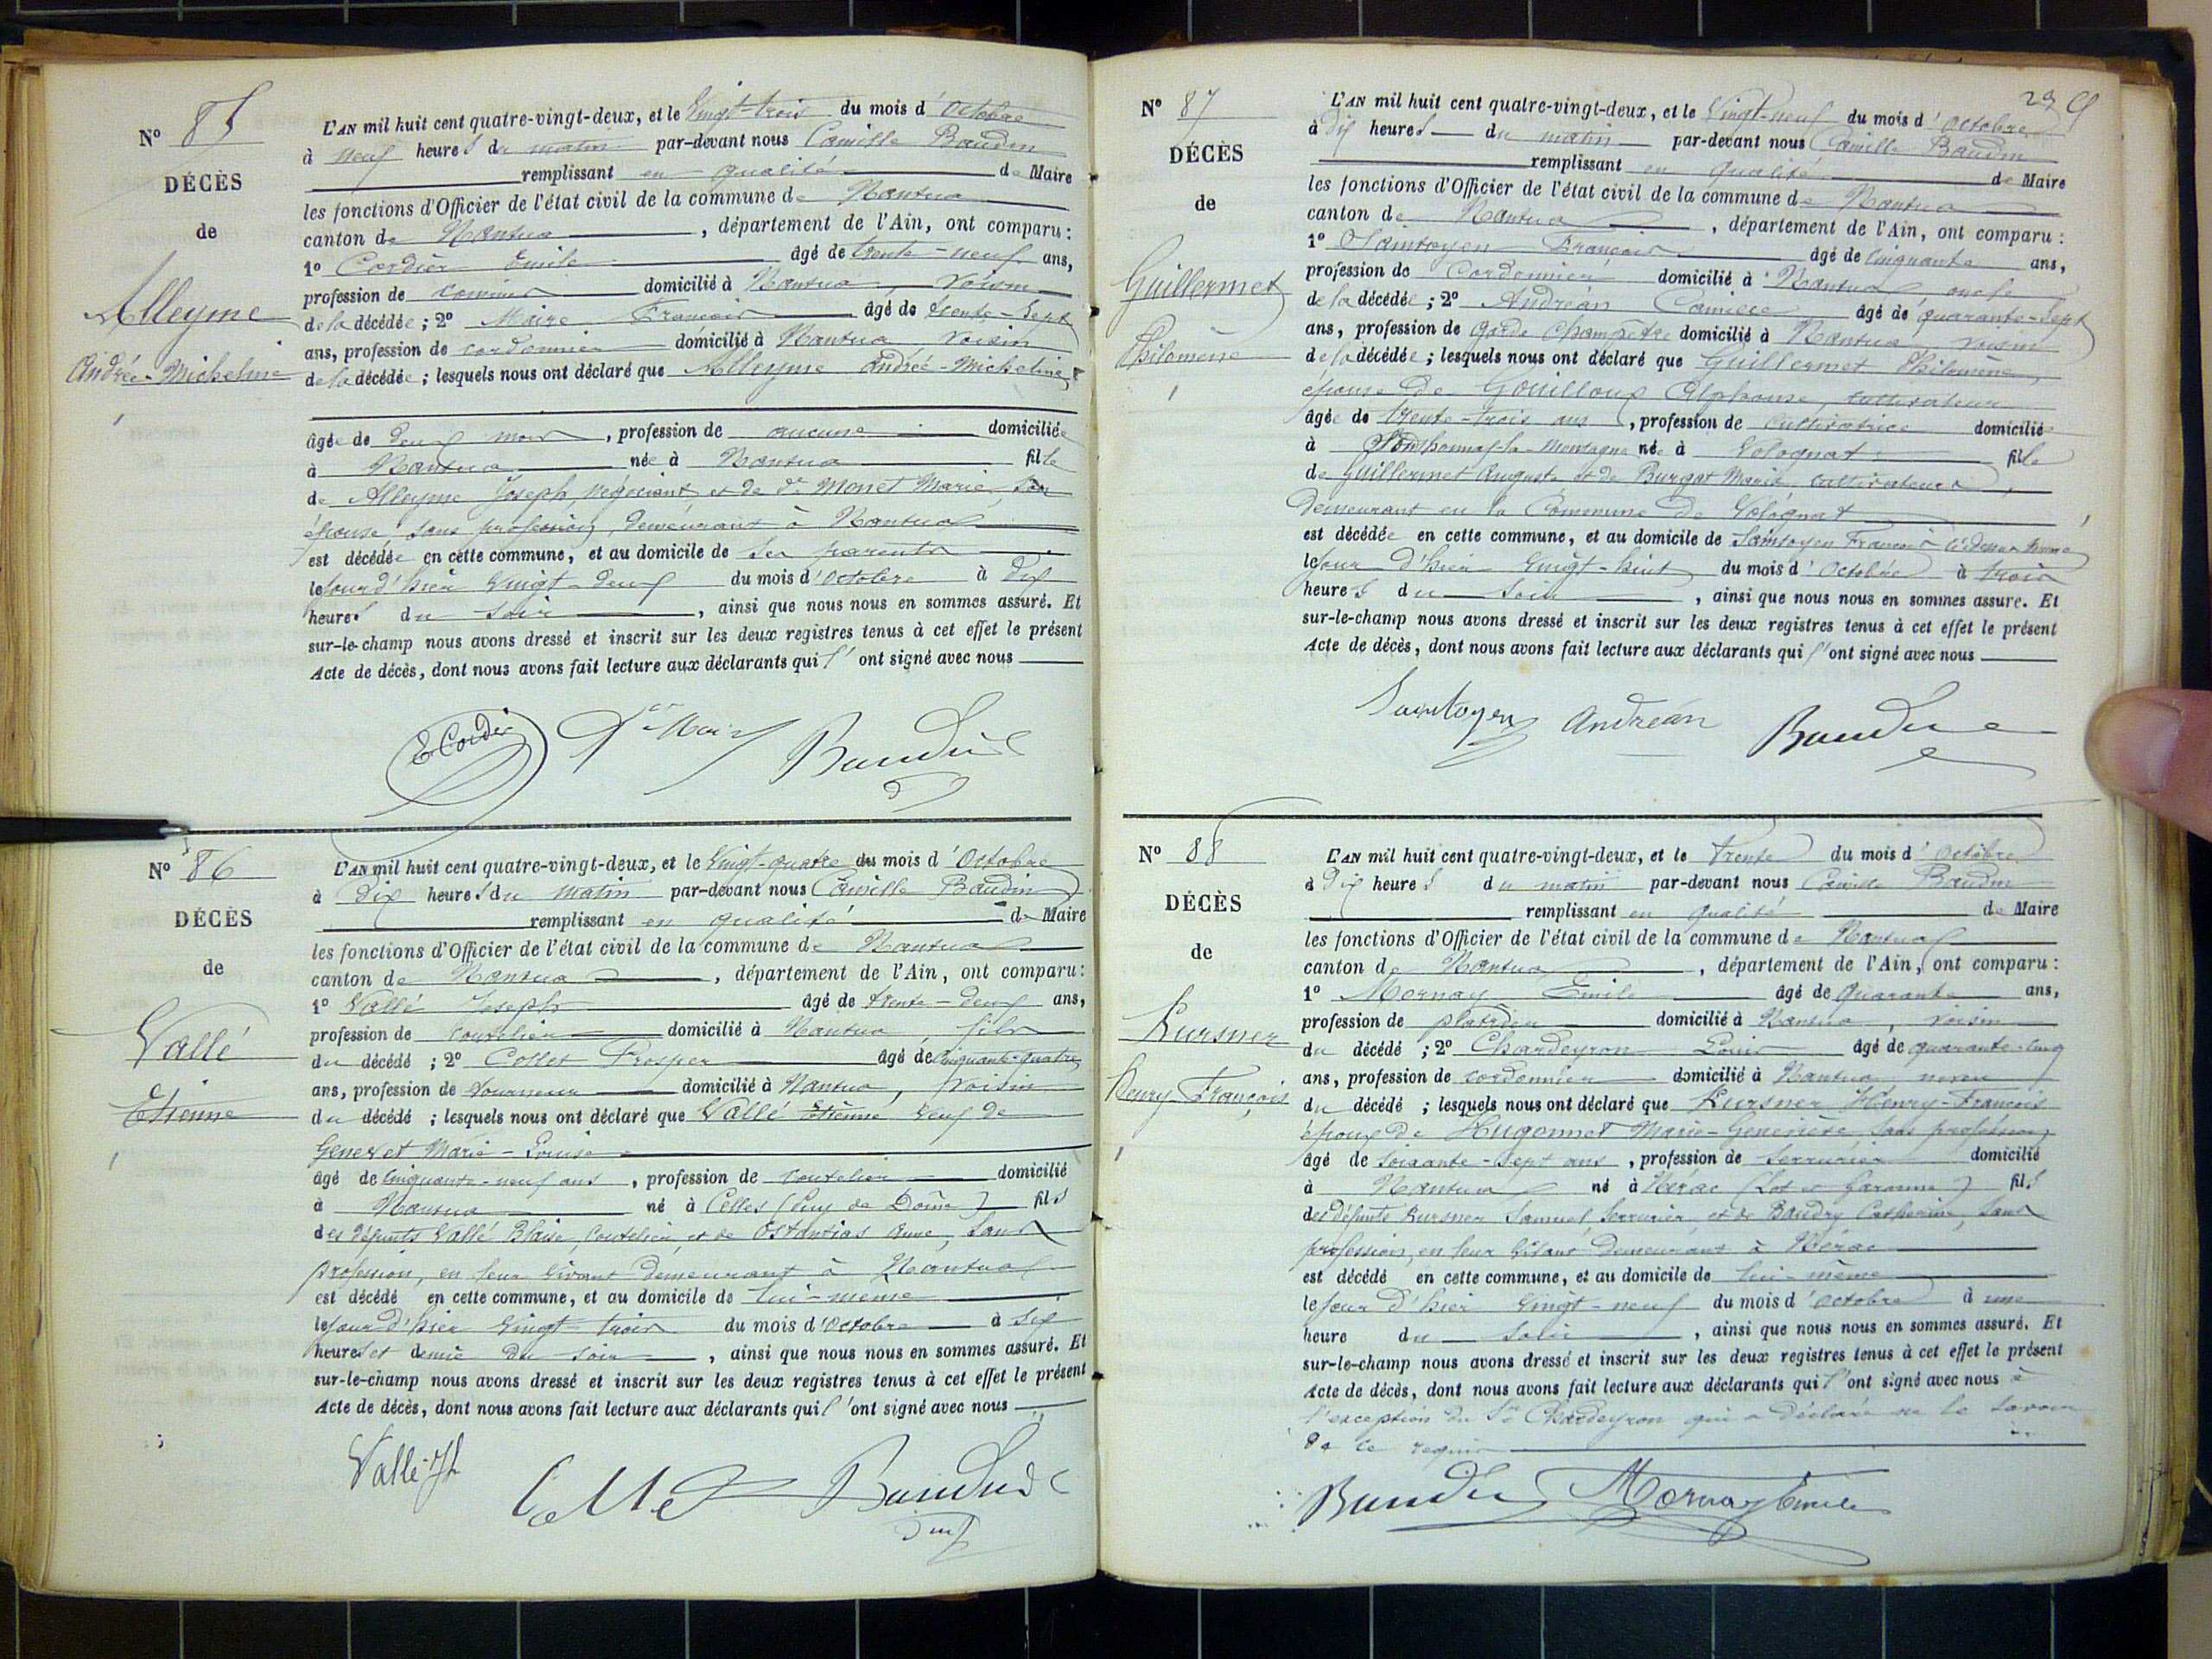 N° 85
DÉCÈS
de
Alleyme
Andrée-Micheline
L'AN mil huit cent quatre-vingt-deux, et le Vingt-trois du mois d'Octobre
à neuf heures du matin par-devant nous Camille Baudin
remplissant en qualité de Maire
les fonctions d'Officier de l'état civil de la commune de Nantua
canton de Nantua, département de l'Ain, ont comparu :
1° Cordier Emile âgé de trente-neuf ans,
profession de domicilié à Nantua, voisin
de la décédée ; 2° Maire François âgé de trente-sept
ans, profession de cordonnier domicilié à Nantua voisin
de la décédée ; lesquels nous ont déclaré que Alleyme Andrée-Micheline,
âgée de deux mois, profession de aucune domiciliée
à Nantua née à Nantua fille
de Alleyme Joseph, négociant et de de Monet Marie, son
épouse, sans profession, demeurant à Nantua
est décédée en cette commune, et au domicile de ses parents
le jour d'hier Vingt-deux du mois d'Octobre à dix
heures du soir, ainsi que nous nous en sommes assuré. Et
sur-le-champ nous avons dressé et inscrit sur les deux registres tenus à cet effet le présent
Acte de décès, dont nous avons fait lecture aux déclarants qui l'ont signé avec nous
E Cordier Baudin
N° 86
DÉCÈS
de
Vallé
Etienne
L'AN mil huit cent quatre-vingt-deux, et le Vingt-quatre du mois d'Octobre
à Dix heures du matin par-devant nous Camille Baudin
remplissant en qualité de Maire
les fonctions d'Officier de l'état civil de la commune de Nantua
canton de Nantua, département de l'Ain, ont comparu :
1° Vallé Joseph âgé de trente-deux ans,
profession de coutelier domicilié à Nantua, fils
du décédé ; 2° Collet Prosper âgé de cinquante-quatre
ans, profession de tourneur domicilié à Nantua, voisin
du décédé ; lesquels nous ont déclaré que Vallé Etienne veuf de
Genevet Marie-Louise
âgé de cinquante-neuf ans, profession de coutelier domicilié
à Nantua né à Celles (Puy de Dôme) fils
des défunts Vallé Blaise, coutelier, et de Ostantias Anne, sans
profession, en leur vivant demeurant à Nantua
est décédé en cette commune, et au domicile de lui-même
le jour d'hier Vingt-trois du mois d'Octobre à six
heures et demie du soir, ainsi que nous nous en sommes assuré. Et
sur-le-champ nous avons dressé et inscrit sur les deux registres tenus à cet effet le présent
Acte de décès, dont nous avons fait lecture aux déclarants qui l'ont signé avec nous
Vallé Jh Collet Baudin
29
N° 87
DÉCÈS
de
Guillermet
Philomène
L'AN mil huit cent quatre-vingt-deux, et le Vingt-neuf du mois d'Octobre
à Dix heures du matin par-devant nous Camille Baudin
remplissant en qualité de Maire
les fonctions d'Officier de l'état civil de la commune de Nantua
canton de Nantua, département de l'Ain, ont comparu :
1° Saintoyen François âgé de Cinquante ans,
profession de Cordonnier domicilié à Nantua oncle
de la décédée ; 2° Andréan Camille âgé de quarante-sept
ans, profession de garde Champêtre domicilié à Nantua voisin
de la décédée ; lesquels nous ont déclaré que Guillermet Philomène,
épouse de Gouilloux Alphonse, cultivateur
âgée de trente-trois ans, profession de cultivatrice domiciliée
à Sonthonnax-la-Montagne née à Volognat fille
de Guillermet Auguste et de Burgat Marie, cultivateurs,
demeurant en la Commune de Volognat
est décédée en cette commune, et au domicile de Saintoyen François ci-dessus nommé
le jour d'hier Vingt-huit du mois d'Octobre à trois
heures du soir, ainsi que nous nous en sommes assuré. Et
sur-le-champ nous avons dressé et inscrit sur les deux registres tenus à cet effet le présent
Acte de décès, dont nous avons fait lecture aux déclarants qui l'ont signé avec nous
Saintoyen Andréan Baudin
N° 88
DÉCÈS
de
Kursner
Henry François
L'AN mil huit cent quatre-vingt-deux, et le Trente du mois d'Octobre
à Dix heures du matin par-devant nous Camille Baudin
remplissant en qualité de Maire
les fonctions d'Officier de l'état civil de la commune de Nantua
canton de Nantua, département de l'Ain, ont comparu :
1° Mornay Emile âgé de Quarante ans,
profession de platrier domicilié à Nantua, voisin
du décédé ; 2° Chardeyron Louis âgé de quarante-cinq
ans, profession de cordonnier domicilié à Nantua, neveu
du décédé ; lesquels nous ont déclaré que Kursner Henry-François
époux de Hugonnet Marie-Geneviève, sans profession
âgé de soixante-sept ans, profession de serrurier domicilié
à Nantua né à Nérac (Lot et Garonne) fils
des défunts Kursner Samuel, serrurier, et de Baudry Catherine, sans
profession, en leur vivant demeurant à Nérac
est décédé en cette commune, et au domicile de lui-même
le jour d'hier Vingt-neuf du mois d'Octobre à une
heure du soir, ainsi que nous nous en sommes assuré. Et
sur-le-champ nous avons dressé et inscrit sur les deux registres tenus à cet effet le présent
Acte de décès, dont nous avons fait lecture aux déclarants qui l'ont signé avec nous à
l'exception du Sr Chardeyron qui a déclaré ne le savoir
de ce requis
Baudin Mornay Emile